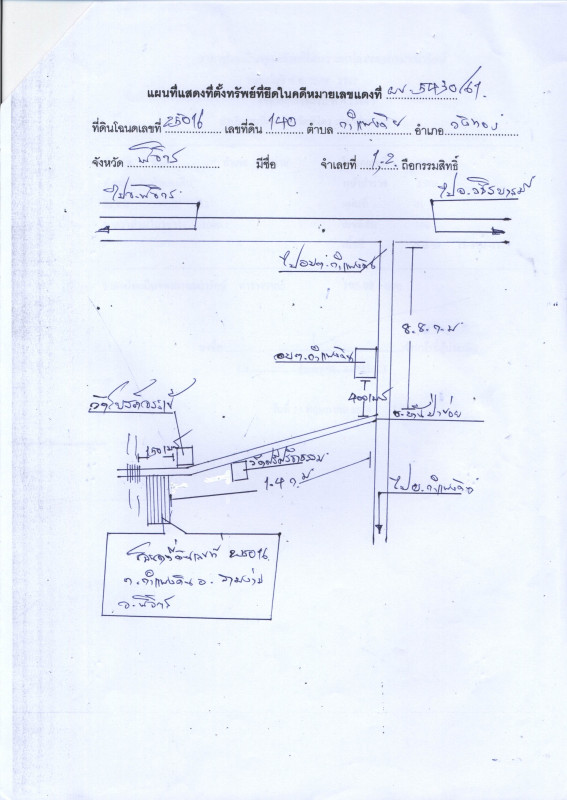 แผนที่แสดงที่ตั้งทรัพย์ที่ยึดในคดีหมายเลขแดงที่ ผบ. 5430/61
ที่ดินโฉนดเลขที่ 25016 เลขที่ดิน 140 ตำบล กำแพงดิน อำเภอ
จังหวัด พิจิตร มีชื่อ จำเลยที่ 1, 2 ถือกรรมสิทธิ์
ไปจ.พิจิตร
ไปอ.วชิรบารมี
ไปอบต.กำแพงดิน
8.8 ก.ม
อบต.กำแพงดิน
400 เมตร
150 เมตร
1.4 ก.ม
ไปต.กำแพงดิน
โฉนดที่ดินเลขที่ 25016
ต.กำแพงดิน อ. สามง่าม
จ.พิจิตร